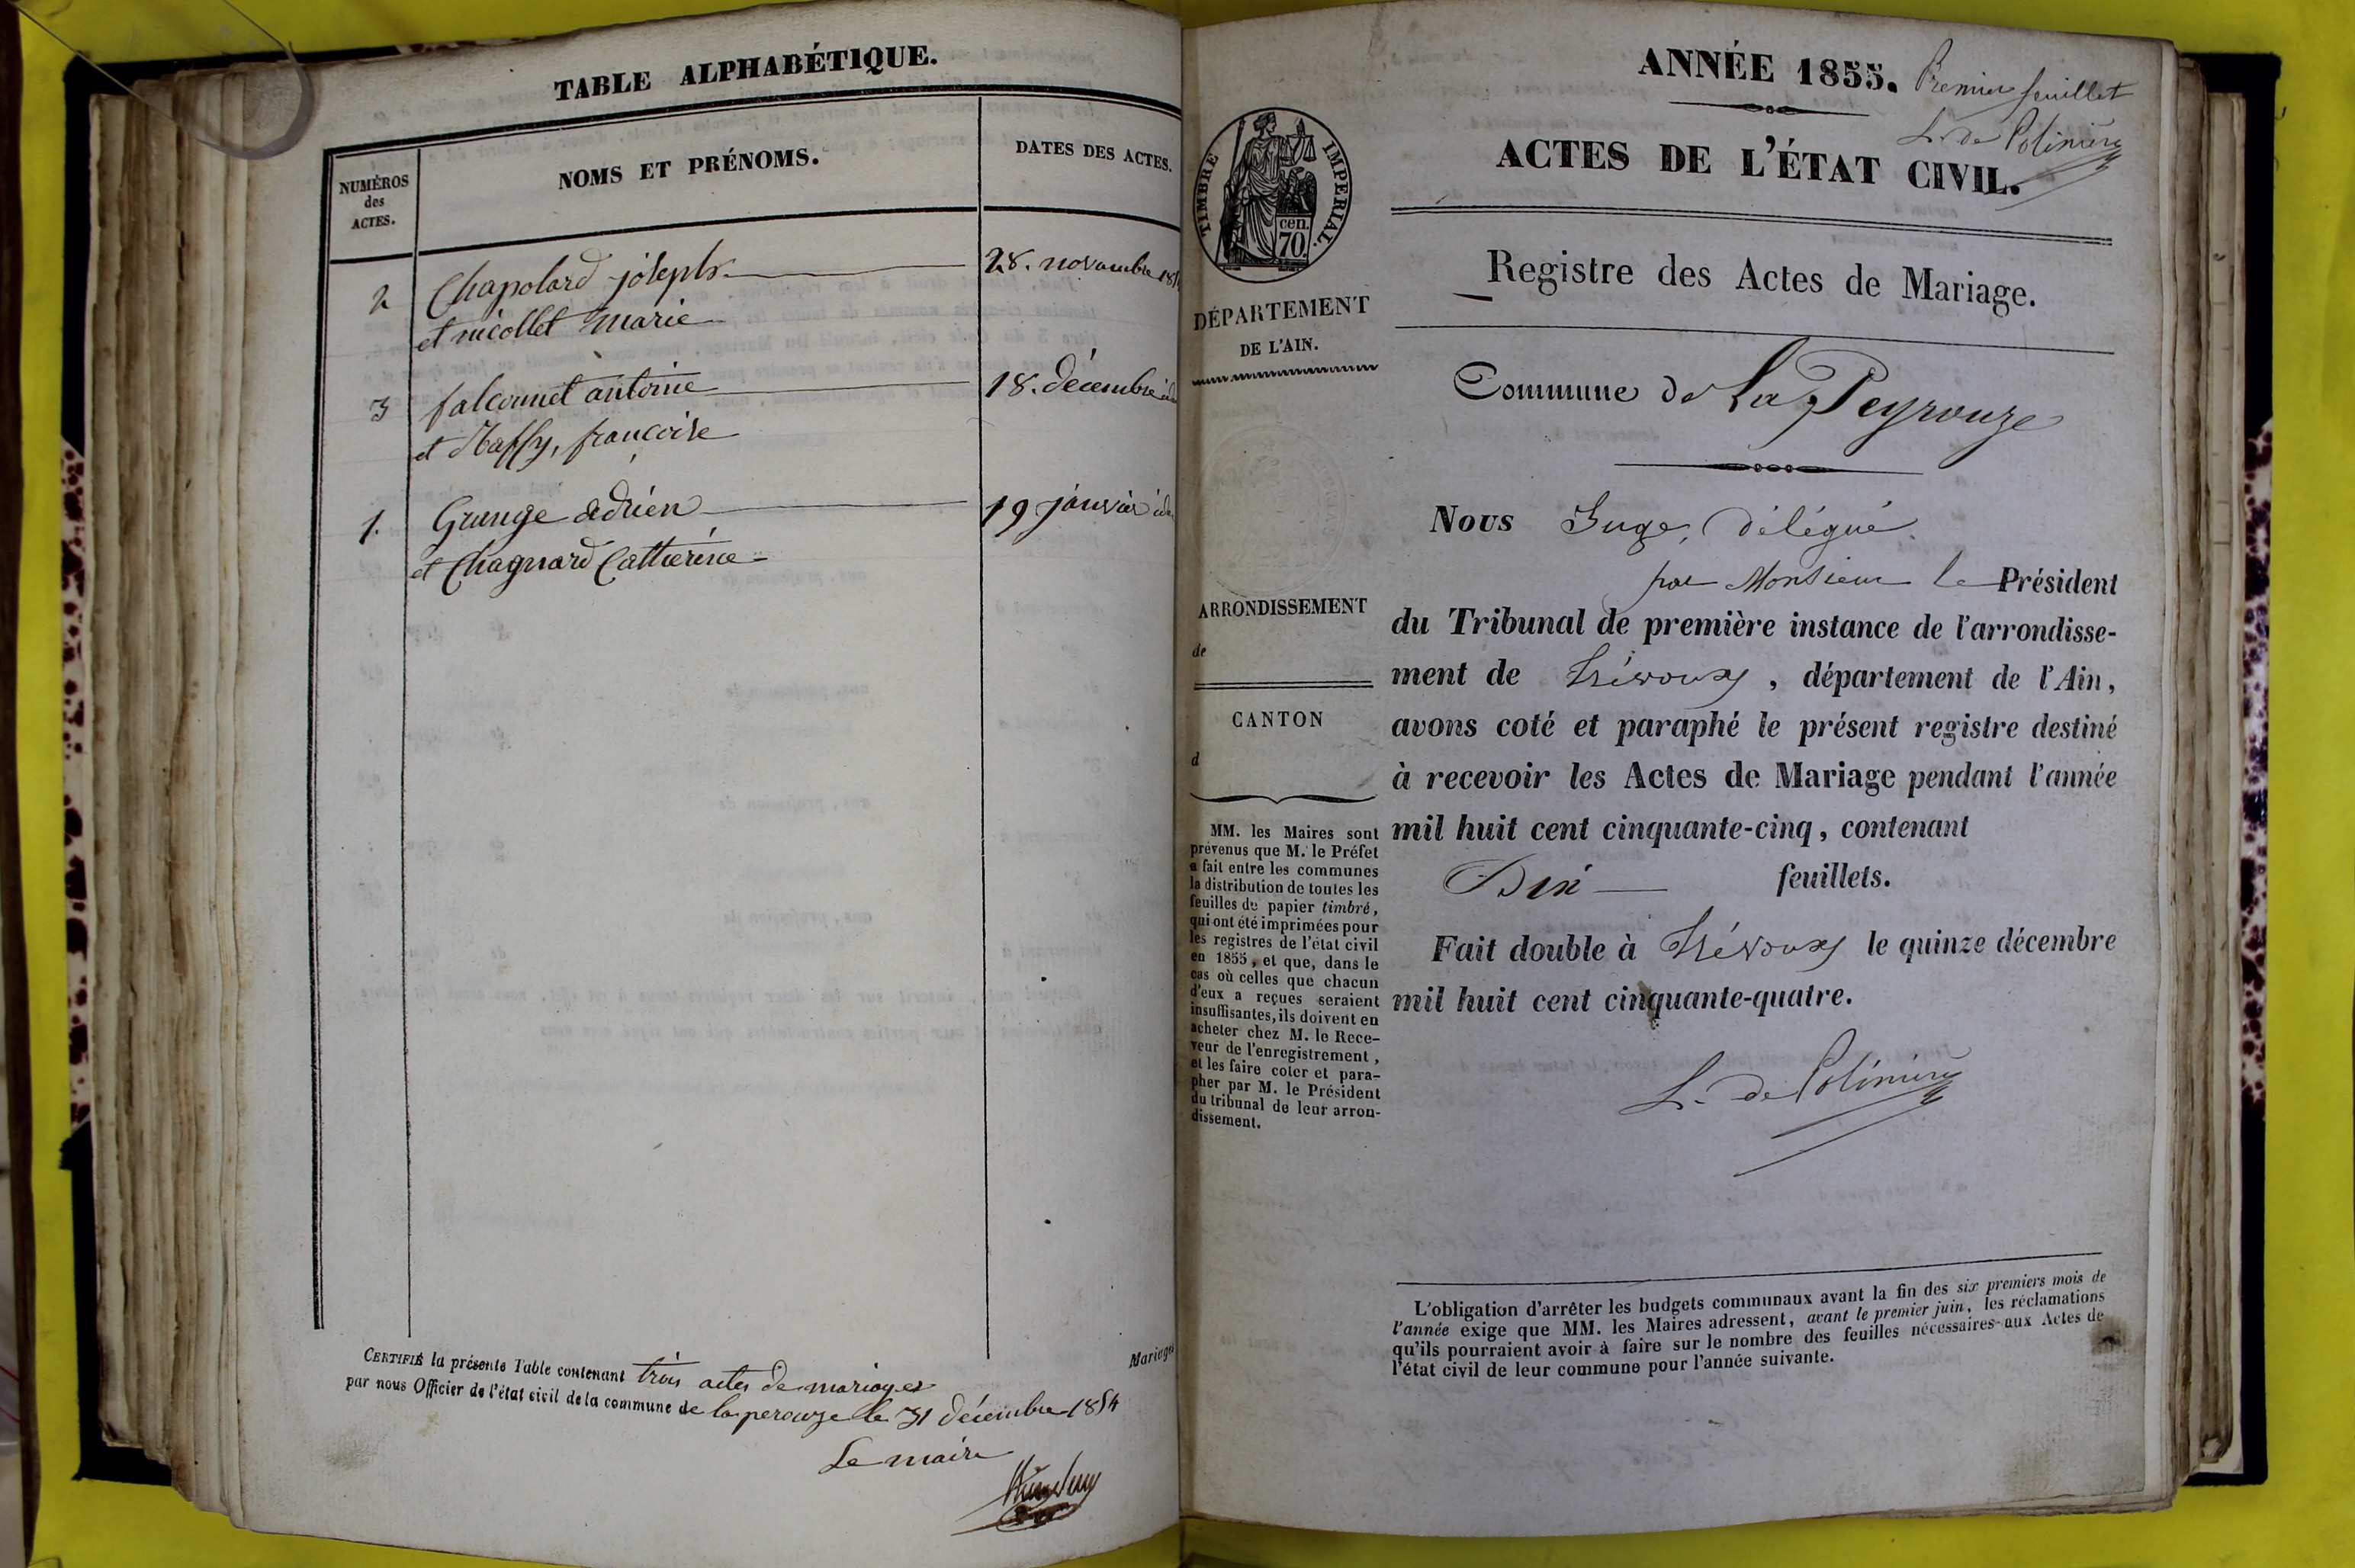 TABLE ALPHABÉTIQUE.
NUMÉROS
des
ACTES.
NOMS ET PRÉNOMS.
DATES DES ACTES.
2 Chapolard joseph 28. novembre 185
et nicollet Marie
3 falconnet antoine 18. décembre id
et françoise
1. Grange adrien 19 janvier id.
et Chagnard Catherine
CERTIFIÉ la présente Table contenant trois actes de mariages
Mariages
par nous Officier de l'état civil de la commune de la perouze le 31 décembre 1854
Le maire
ANNÉE 1855.
Premier feuillet
L. de Polinière
ACTES DE L'ÉTAT CIVIL.
Registre des Actes de Mariage.
Commune de La Peyrouze
Nous Juge, délégué
par Monsieur le Président
du Tribunal de première instance de l'arrondisse-
ment de Trévoux, département de l'Ain,
avons coté et paraphé le présent registre destiné
à recevoir les Actes de Mariage pendant l'année
mil huit cent cinquante-cinq, contenant
Dix feuillets.
Fait double à Trévoux le quinze décembre
mil huit cent cinquante-quatre.
L. de Polinière
TIMBRE IMPERIAL.
cen.
70.
DÉPARTEMENT
DE L'AIN.
ARRONDISSEMENT
de
CANTON
d
MM. les Maires sont
prévenus que M. le Préfet
a fait entre les communes
la distribution de toutes les
feuilles de papier timbré,
qui ont été imprimées pour
les registres de l'état civil
en 1855, et que, dans le
cas où celles que chacun
d'eux a reçues seraient
insuffisantes, ils doivent en
acheter chez M. le Rece-
veur de l'enregistrement,
et les faire coter et para-
pher par M. le Président
du tribunal de leur arron-
dissement.
L'obligation d'arrêter les budgets communaux avant la fin des six premiers mois de
l'année exige que MM. les Maires adressent, avant le premier juin, les réclamations
qu'ils pourraient avoir à faire sur le nombre des feuilles nécessaires aux Actes de
l'état civil de leur commune pour l'année suivante.